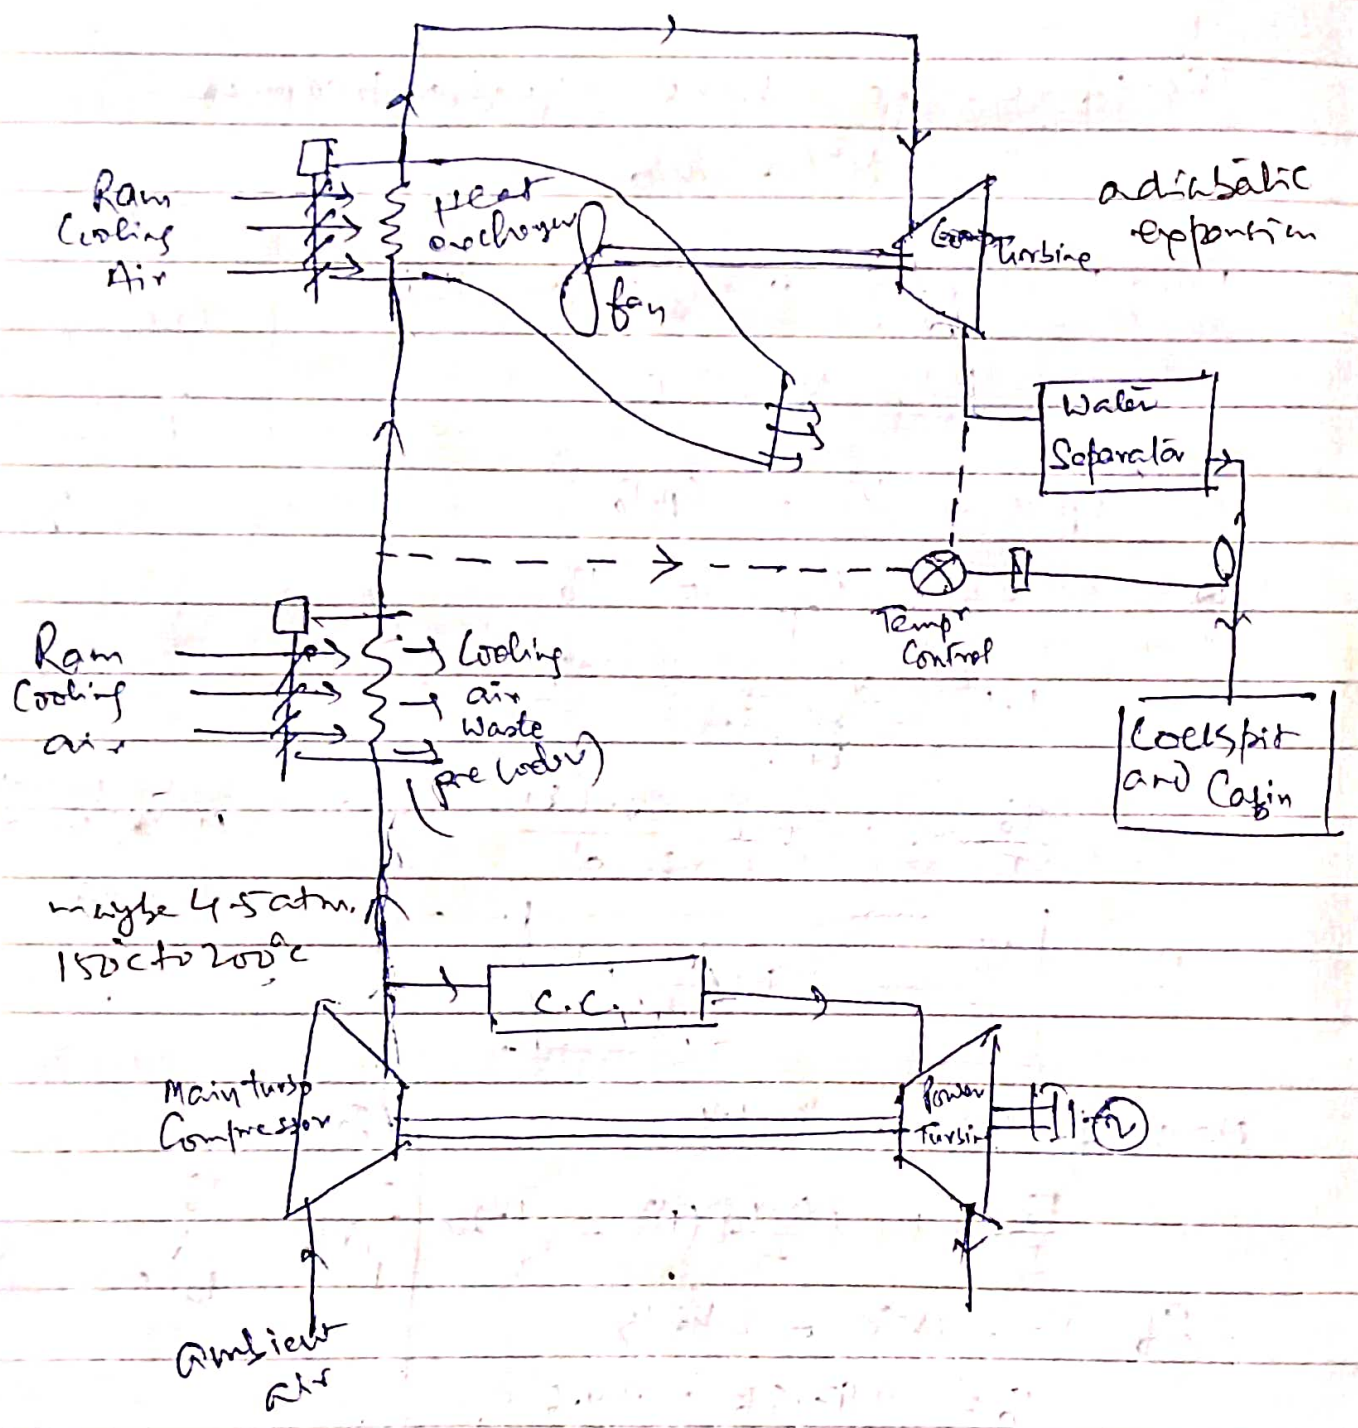 Ram
Cooling
Air
Heat
exchanger
fan
Turbine
adiabatic
expansion
Water
Separator
Temp^r
Control
Ram
Cooling
air
Cooling
air
Waste
pre cooler)
Cockpit
and Cabin
maybe 4-5 atm.
150°c to 200°c
C.C.
Main turbo
Compressor
Power
Turbin
ambient
air